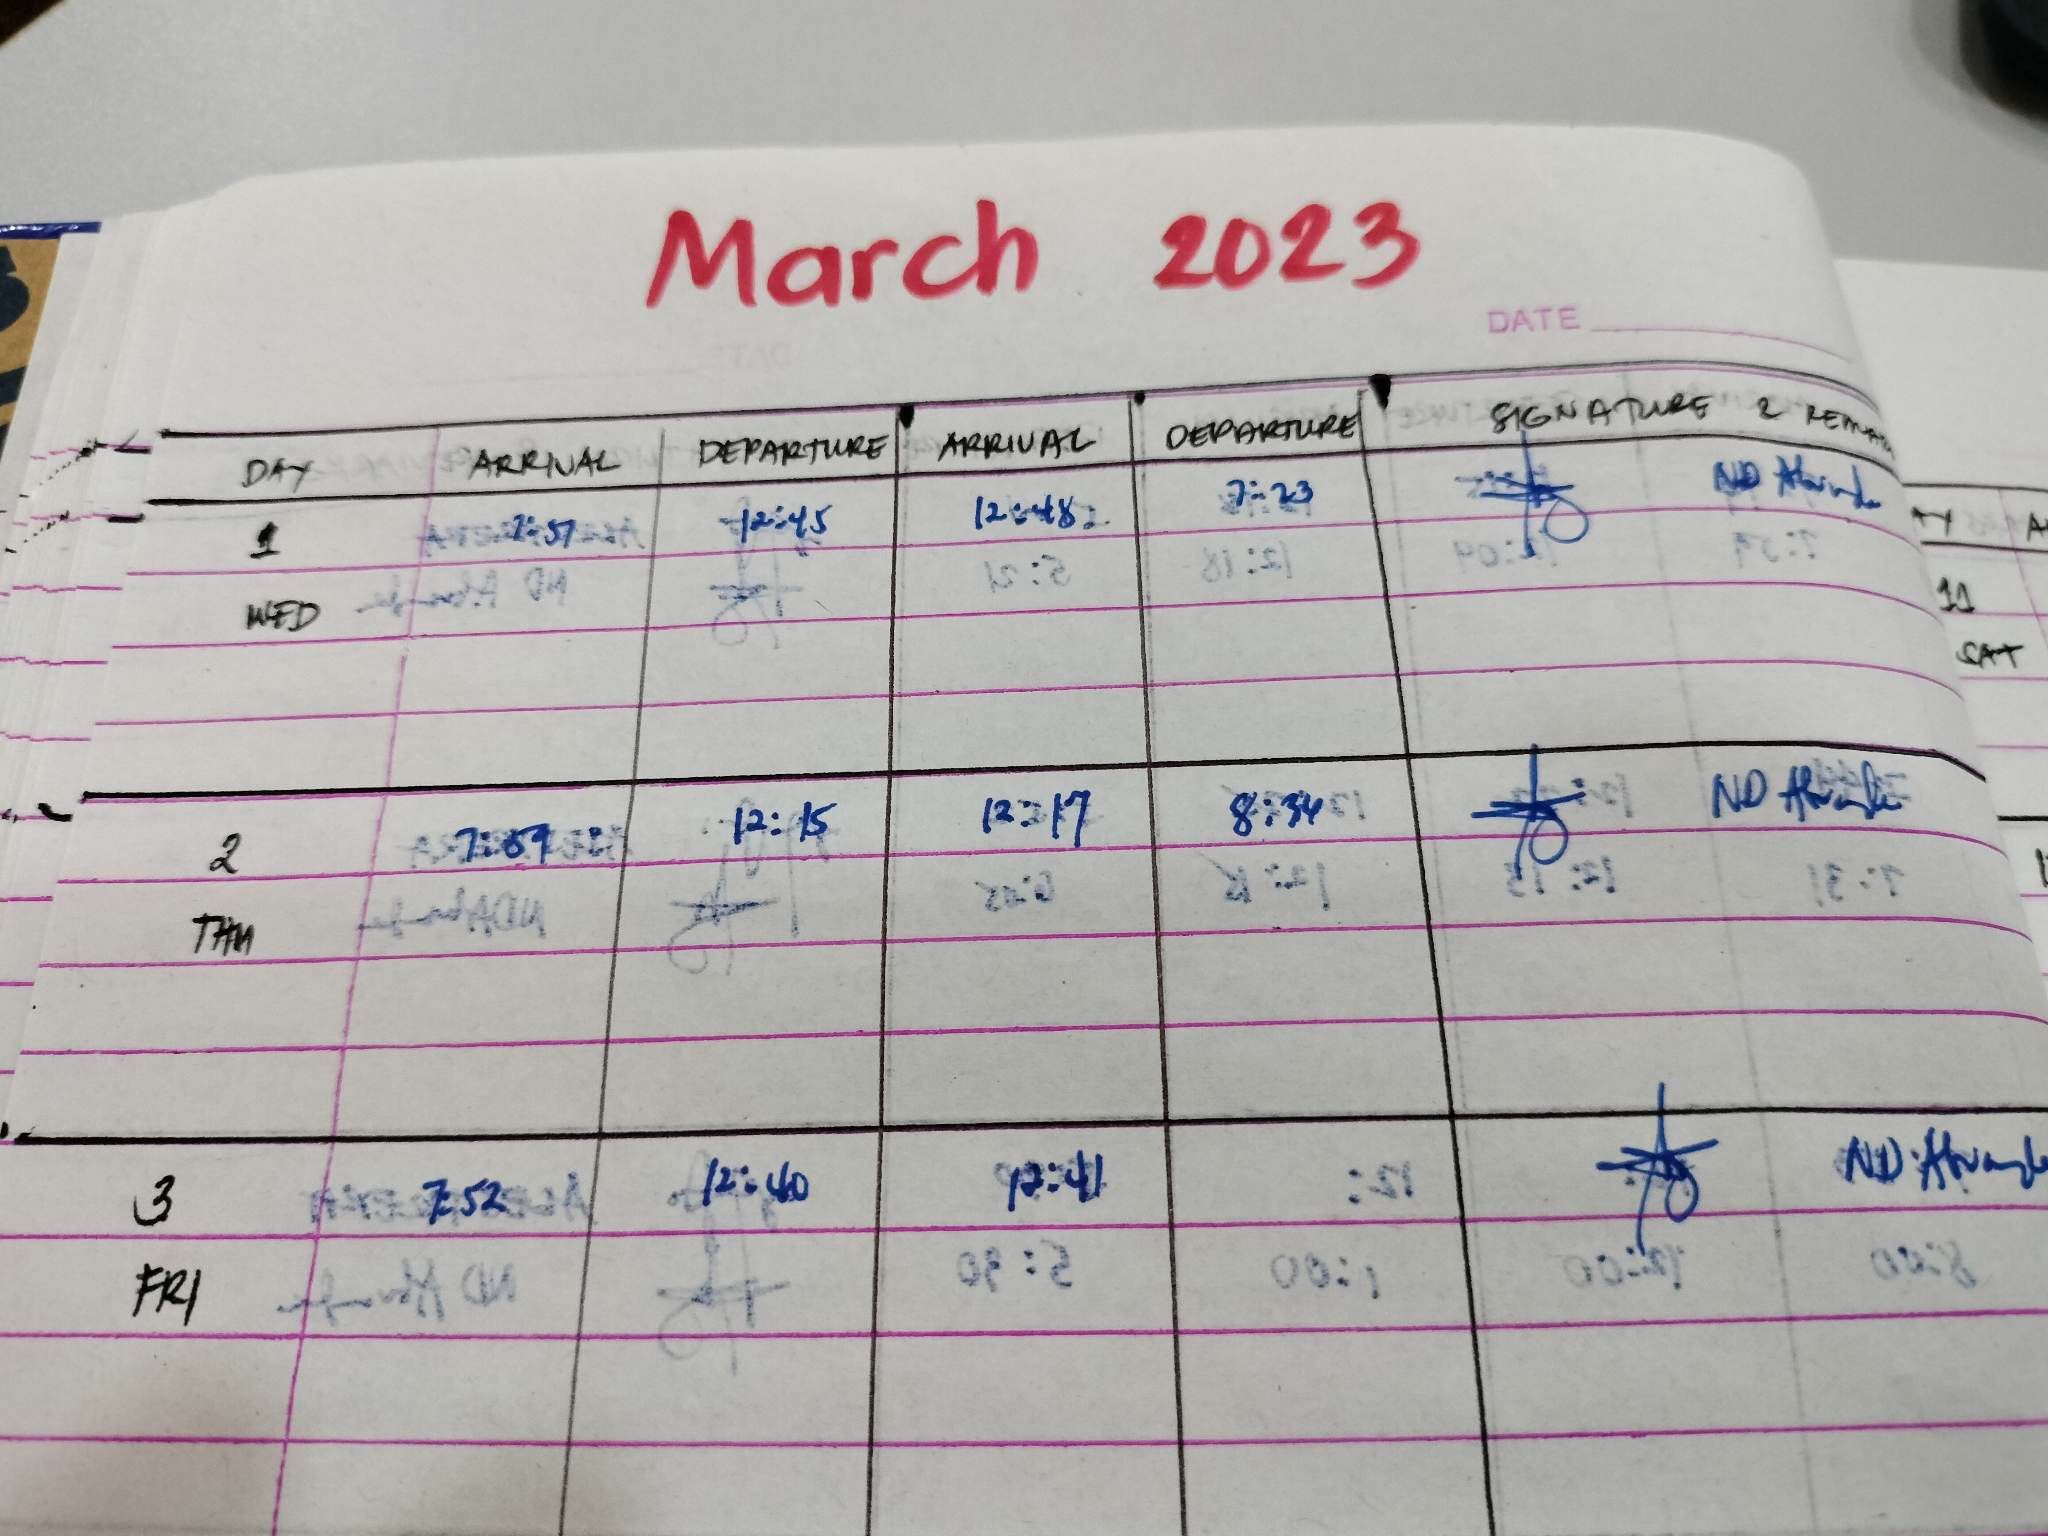 March 2023
DATE
DAY ARRIVAL DEPARTURE ARRIVAL DEPARTURE SIGNATURE & REMA
1 7:57 12:45 12:48 7:23 ND
WED
2 7:59 12:15 12:17 8:34 ND
THU
3 7:52 12:40 12:41 ND
FRI
11
SAT